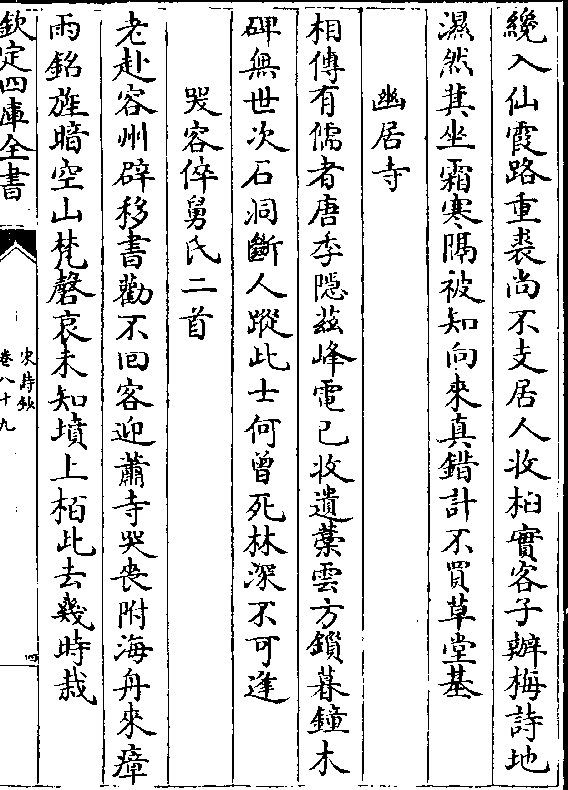 纔入仙霞路重裘尚不支居人收桕實客子辦梅詩地
濕然萁坐霜寒隔被知向來真錯計不買草堂基
幽居寺
相傳有儒者唐季隱兹峰電已收遺藁雲方鎖暮鐘木
碑無世次石洞斷人蹤此士何曾死林深不可逢
哭容倅舅氏二首
老赴容州辟移書勸不囘客迎蕭寺哭喪附海舟來瘴
雨銘旌暗空山梵磬哀未知墳上栢此去幾時栽
欽定四庫全書
宋詩鈔
卷八十九
四